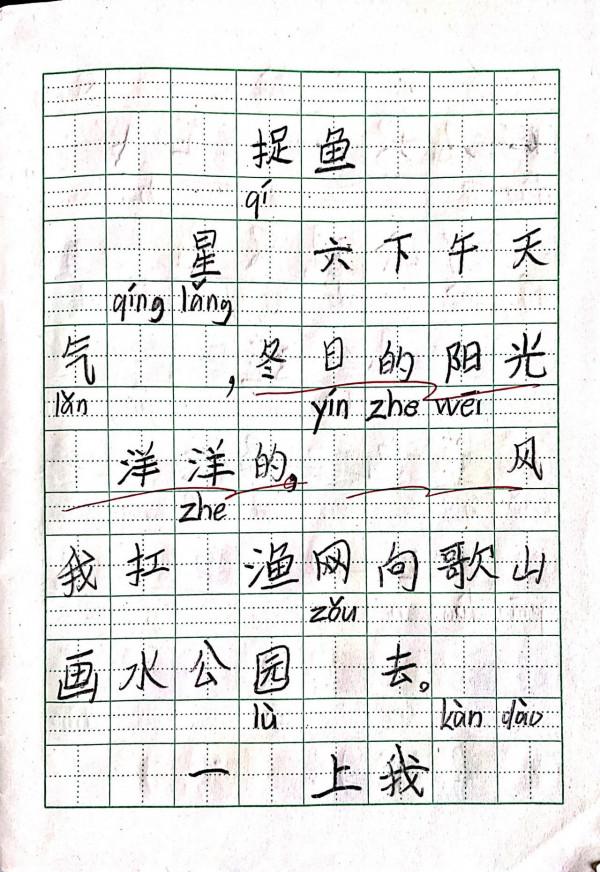 捉鱼
qí
星 六下午天
qíng lǎng
气 ，冬日的阳光
lǎn yín zhe wēi
洋洋的。 风
zhe
我扛 渔网向歌山
zǒu
画水公园 去。
lù kàn dào
一 上我